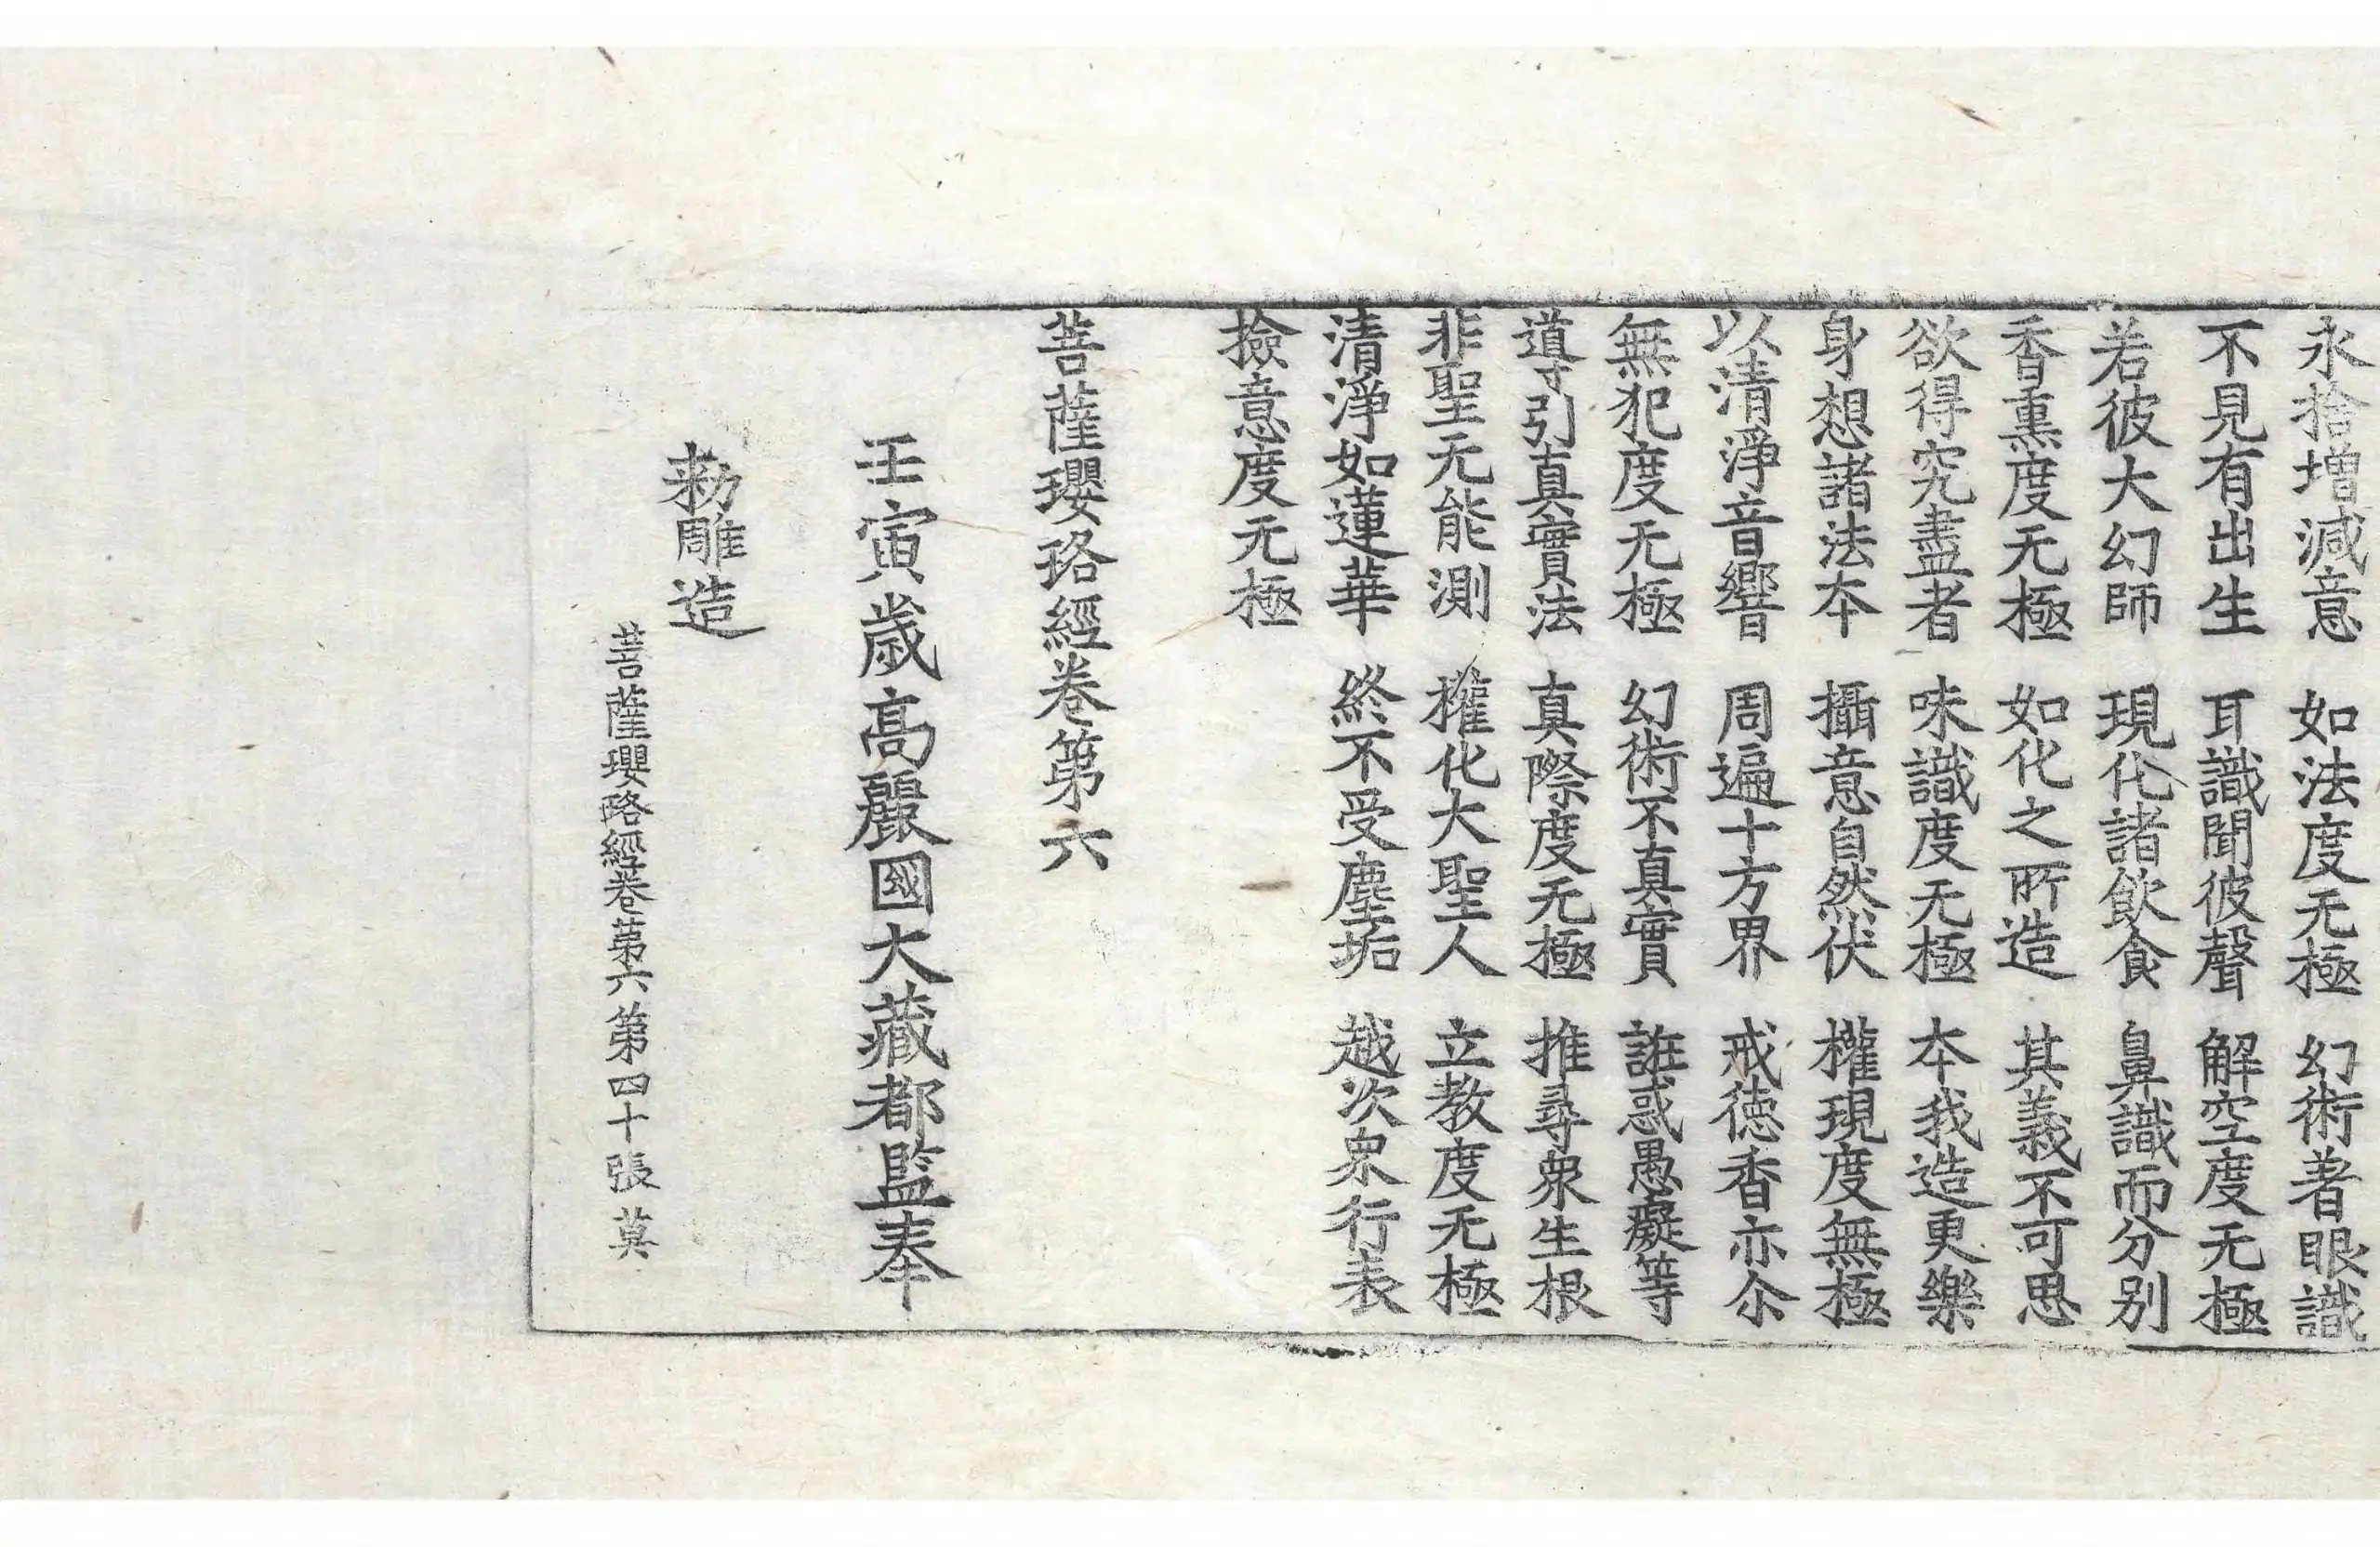 永捨增減意　如法度无極　幻術著眼識
不見有出生　耳識聞彼聲　解空度无極
若彼大幻師　現化諸飮食　鼻識而分別
香熏度无極　如化之所造　其義不可思
欲得究盡者　味識度无極　夲我造更樂
身想諸法夲　攝意自然伏　權現度無極
以清淨音響　周遍十方界　戒徳香亦尒
無犯度无極　幻術不真實　誰惑愚癡等
導引真實法　真際度无極　推尋衆生根
非聖无能測　權化大聖人　立教度无極
清淨如蓮華　終不受塵垢　越次衆行表
撿意度无極
菩薩瓔珞經卷第六
壬寅歲高麗國大藏都監奉
勑雕造
菩薩瓔珞經卷第六　第四十張　莫